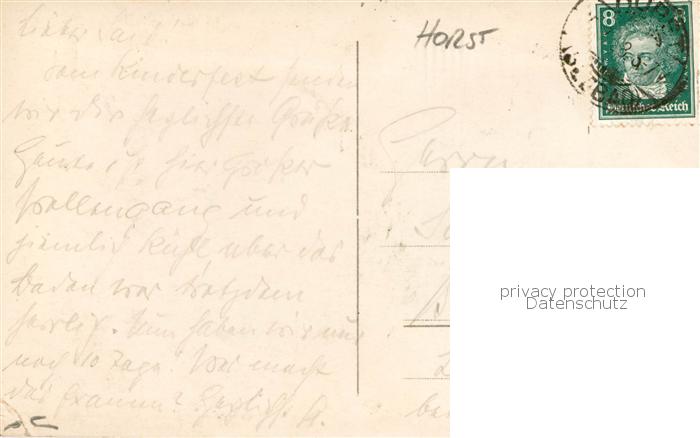 Lieber
vom Kinderfest senden
wir dir herzlichste Grüße.
Heute ist hier großer
Wellengang und
ziemlich kühl aber das
Baden war trotzdem
herrlich. Nun haben wir nur
noch 10 Tage. Was macht
das Examen? Herzlichst A.
HORST
8
Deutsches Reich
Herrn
privacy protection
Datenschutz